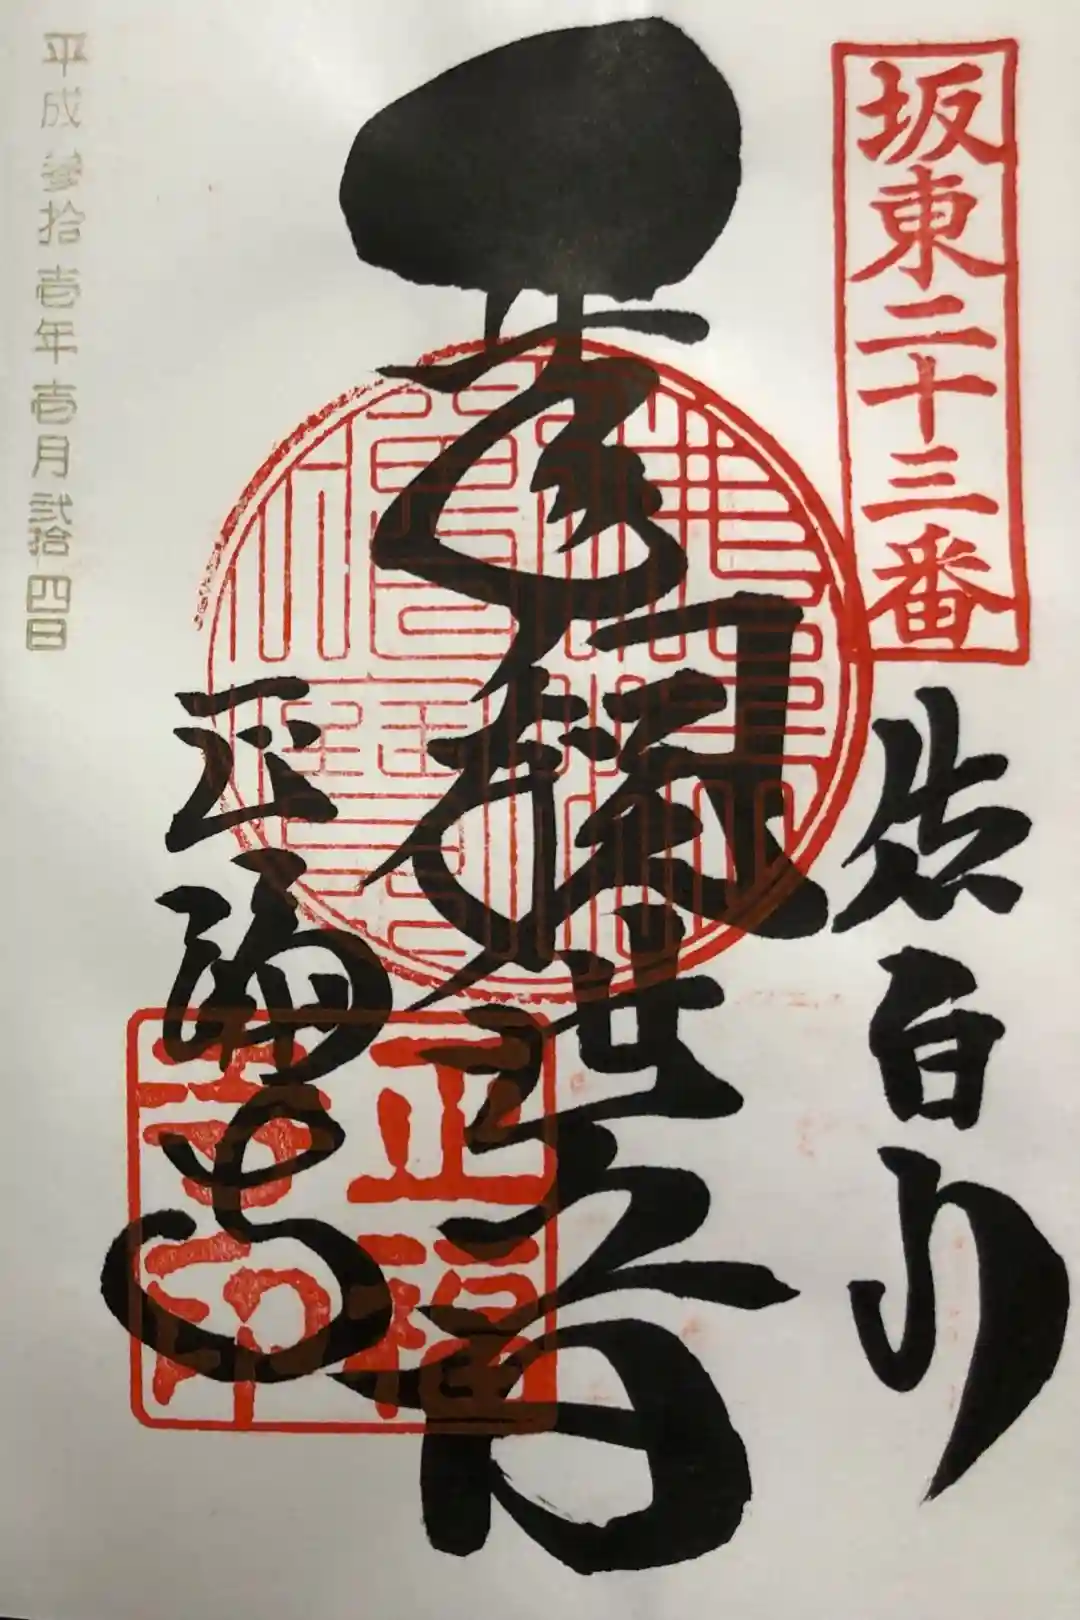 坂東二十三番
佐白山
千手観世音
正福寺
正福寺印
平成参拾壱年壱月弐拾四日